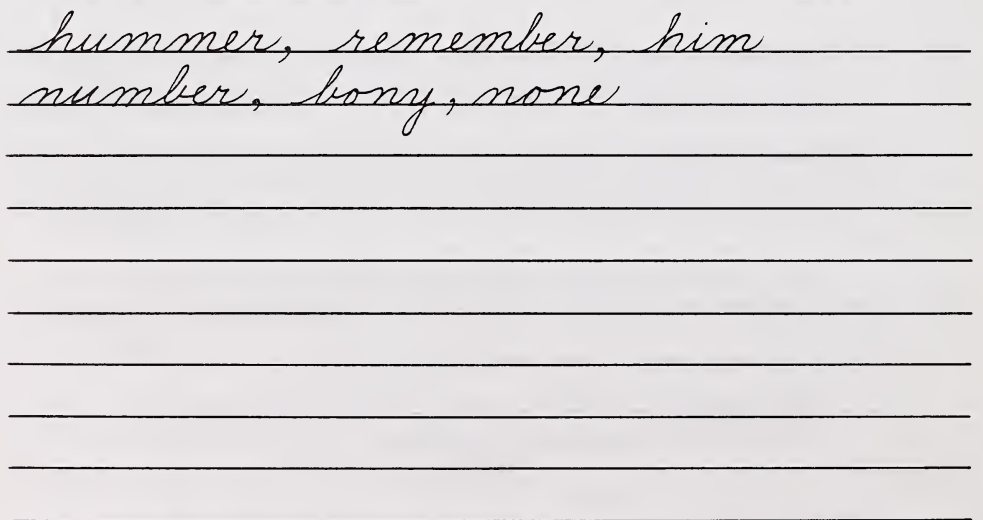 hummer, remember, him
number, bony, none